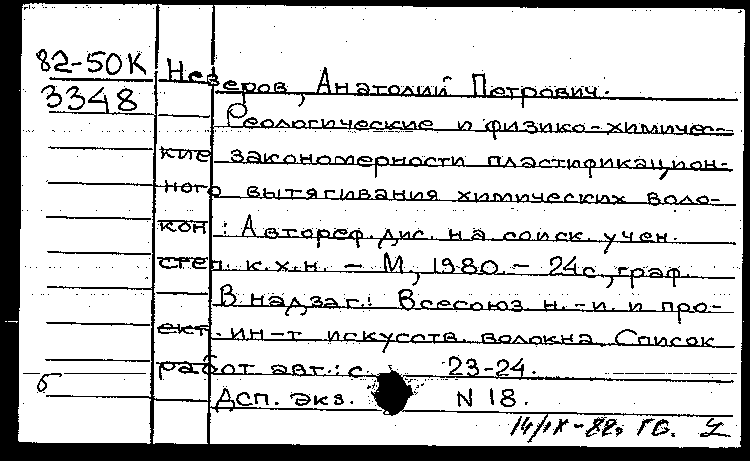 82-50К
3348
Неверов, Анатолий Петрович.
Реологические и физико-химичес-
кие закономерности пластификацион-
ного вытягивания химических воло-
кон : Автореф. дис. на соиск. учен.
степ. к.х.н. - М, 1980. - 24с., граф.
В надзаг.: Всесоюз н.-и. и про-
ект. ин-т искусств. волокна. Список
работ авт.: с. 23-24.
б
Дсп. экз. N 18.
14/IX-82г. ГС.